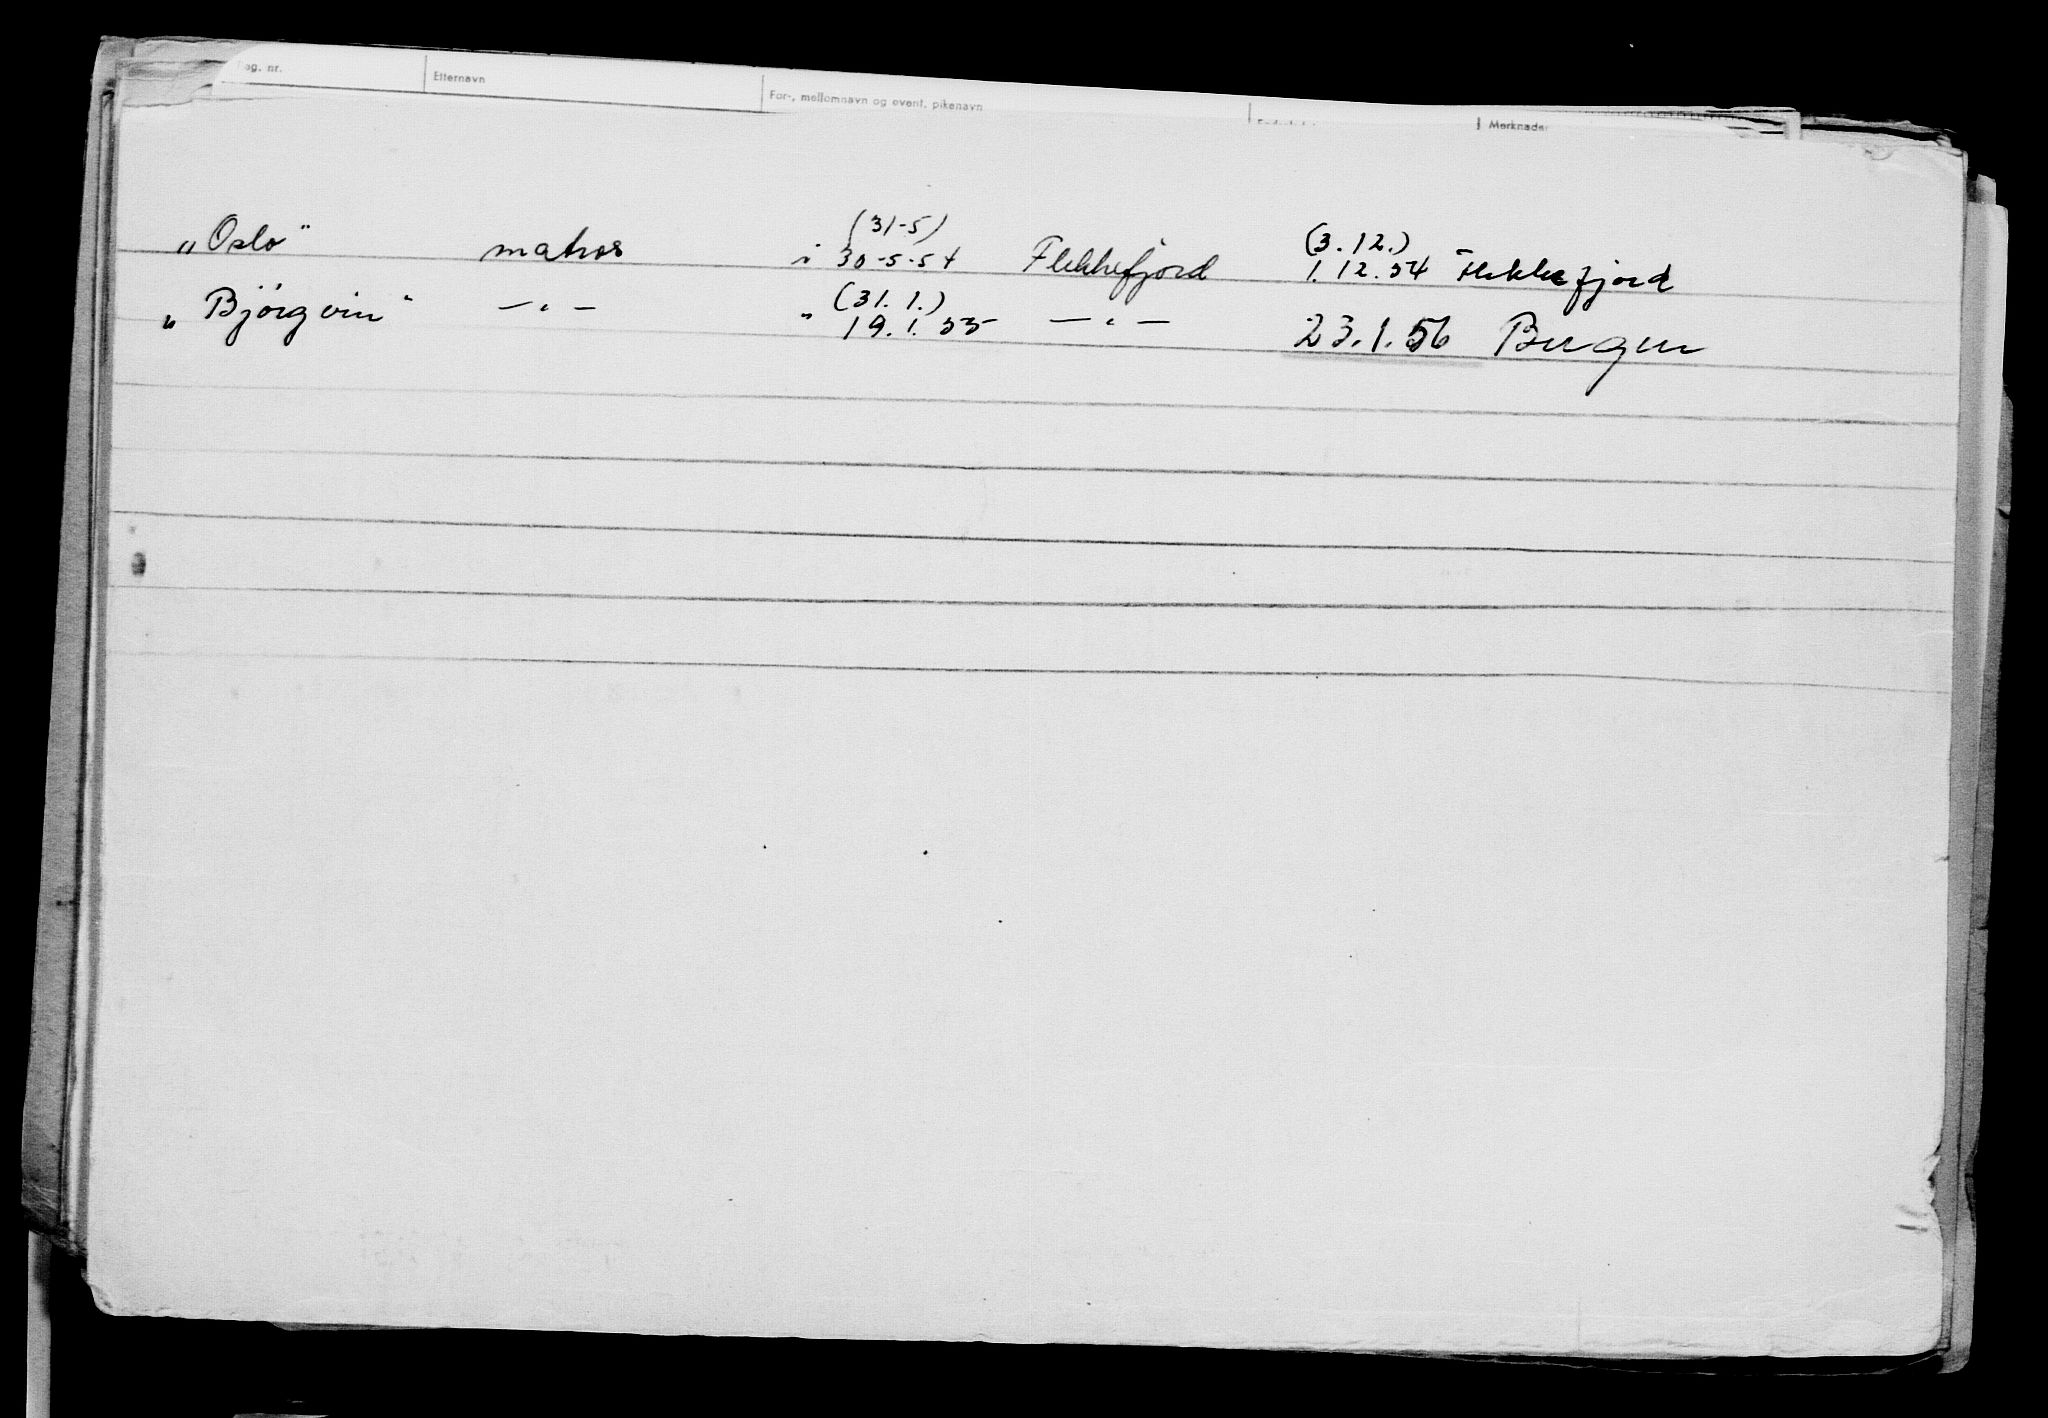 Etternavn
For-, mellomnavn og event. pikenavn
Merknader
(31-5) (3.12.)
„Oslo" matros i 30-5-54 Flekkefjord 1.12.54 Flekkefjord
(31.1.)
„Bjørgvin" — " — " 19.1.55 — " — 23.1.56 Bergen